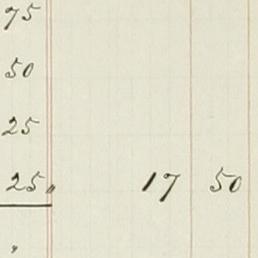 75
50
25
25 " 17 50
"